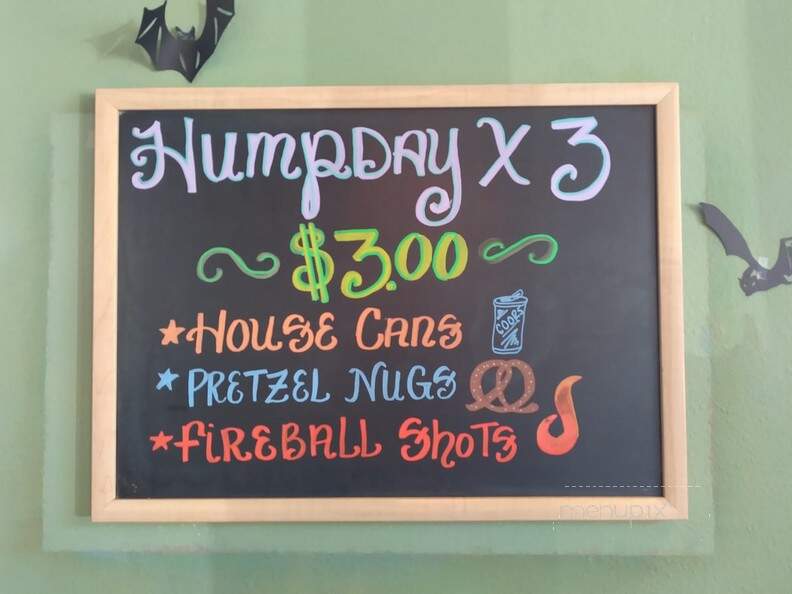 Humpday x 3
~ $3.00 ~
★ House Cans
COORS
★ Pretzel Nugs
★ Fireball Shots
menupix